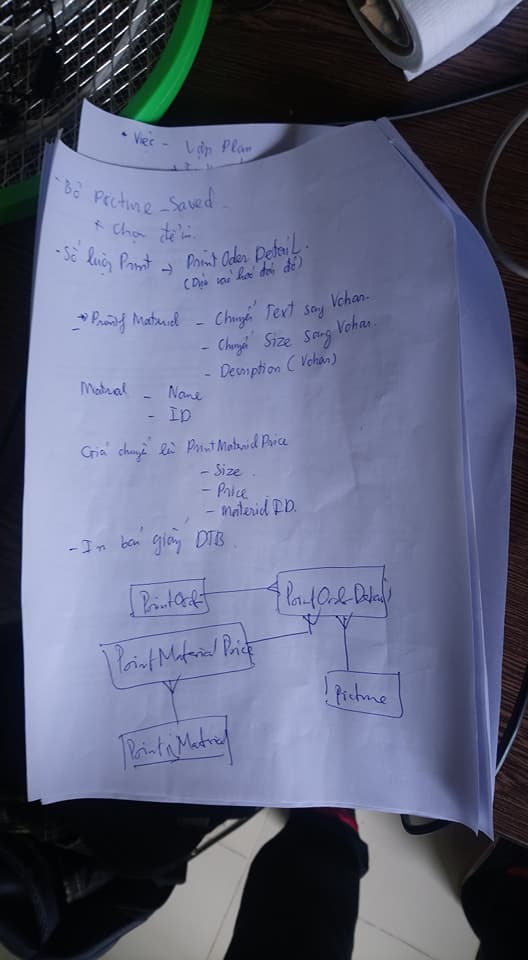 • Việc - Lập Plan
- Bỏ Picture_Saved.
* Chọn để in.
- Số lượng Print → Print Oder Detail.
(Dựa vào hoá đơn đó)
→ Print Material - Chuyển Text sang Vchar.
- Chuyển Size sang Vchar.
- Description (Vchar)
Material - Name
- ID
Giá chuyển là PrintMaterialPrice
- Size
- Price
- Material ID.
- In ba giấy DTB.
PrintOrd
PrintOrdDetail
PrintMaterialPrice
Picture
Print Material